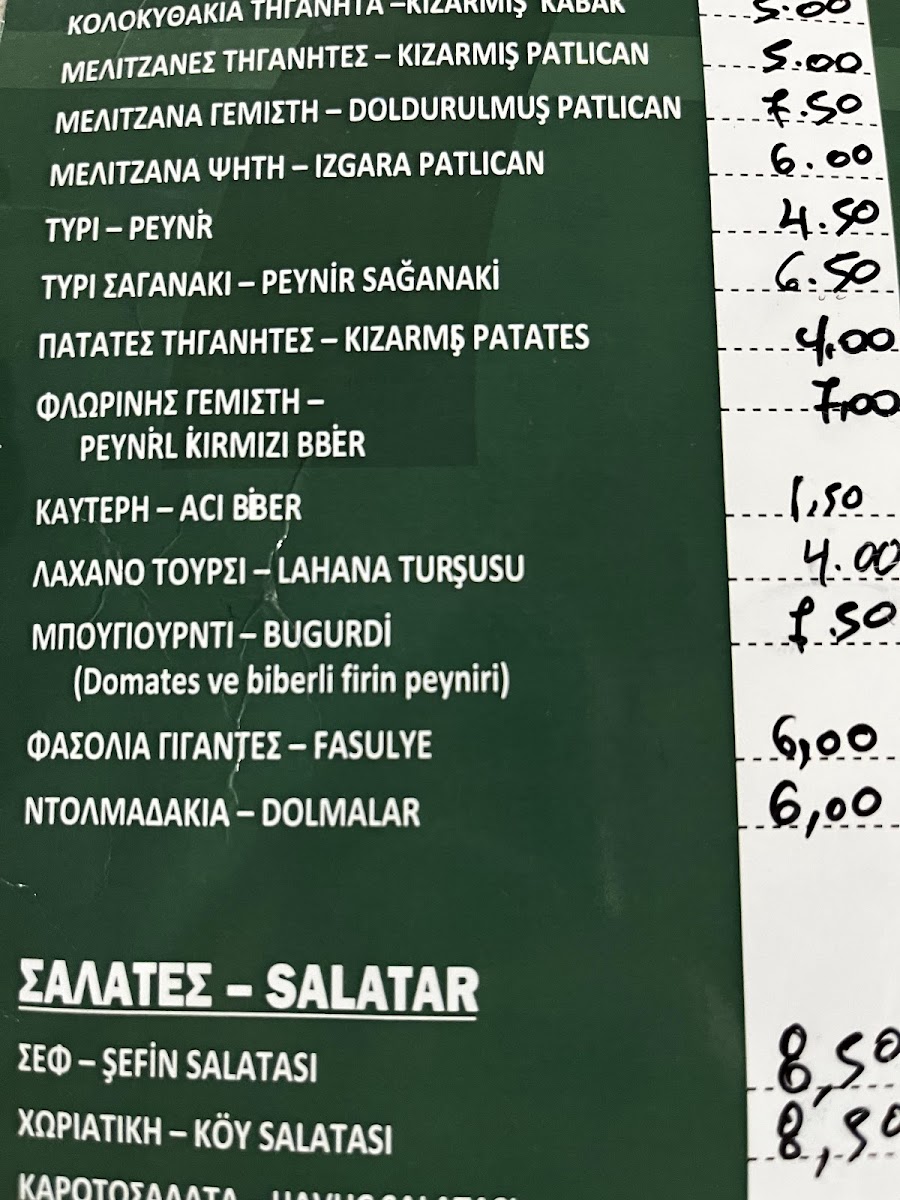 ΚΟΛΟΚΥΘΑΚΙΑ ΤΗΓΑΝΗΤΑ –KIZARMIŞ KABAK 5.00
ΜΕΛΙΤΖΑΝΕΣ ΤΗΓΑΝΗΤΕΣ – KIZARMIŞ PATLICAN 5.00
ΜΕΛΙΤΖΑΝΑ ΓΕΜΙΣΤΗ – DOLDURULMUŞ PATLICAN 7.50
ΜΕΛΙΤΖΑΝΑ ΨΗΤΗ – IZGARA PATLICAN 6.00
ΤΥΡΙ – PEYNİR 4.50
ΤΥΡΙ ΣΑΓΑΝΑΚΙ – PEYNİR SAĞANAKİ 6.50
ΠΑΤΑΤΕΣ ΤΗΓΑΝΗΤΕΣ – KIZARMIŞ PATATES 4,00
ΦΛΩΡΙΝΗΣ ΓΕΜΙΣΤΗ – 7,00
PEYNİRLİ KIRMIZI BİBER
ΚΑΥΤΕΡΗ – ACI BİBER 1,50
ΛΑΧΑΝΟ ΤΟΥΡΣΙ – LAHANA TURŞUSU 4.00
ΜΠΟΥΓΙΟΥΡΝΤΙ – BUGURDİ 7.50
(Domates ve biberli firin peyniri)
ΦΑΣΟΛΙΑ ΓΙΓΑΝΤΕΣ – FASULYE 6,00
ΝΤΟΛΜΑΔΑΚΙΑ – DOLMALAR 6,00
ΣΑΛΑΤΕΣ – SALATAR
ΣΕΦ – ŞEFİN SALATASI 8,50
ΧΩΡΙΑΤΙΚΗ – KÖY SALATASI 8,50
ΚΑΡΟΤΟΣΑΛΑΤΑ –